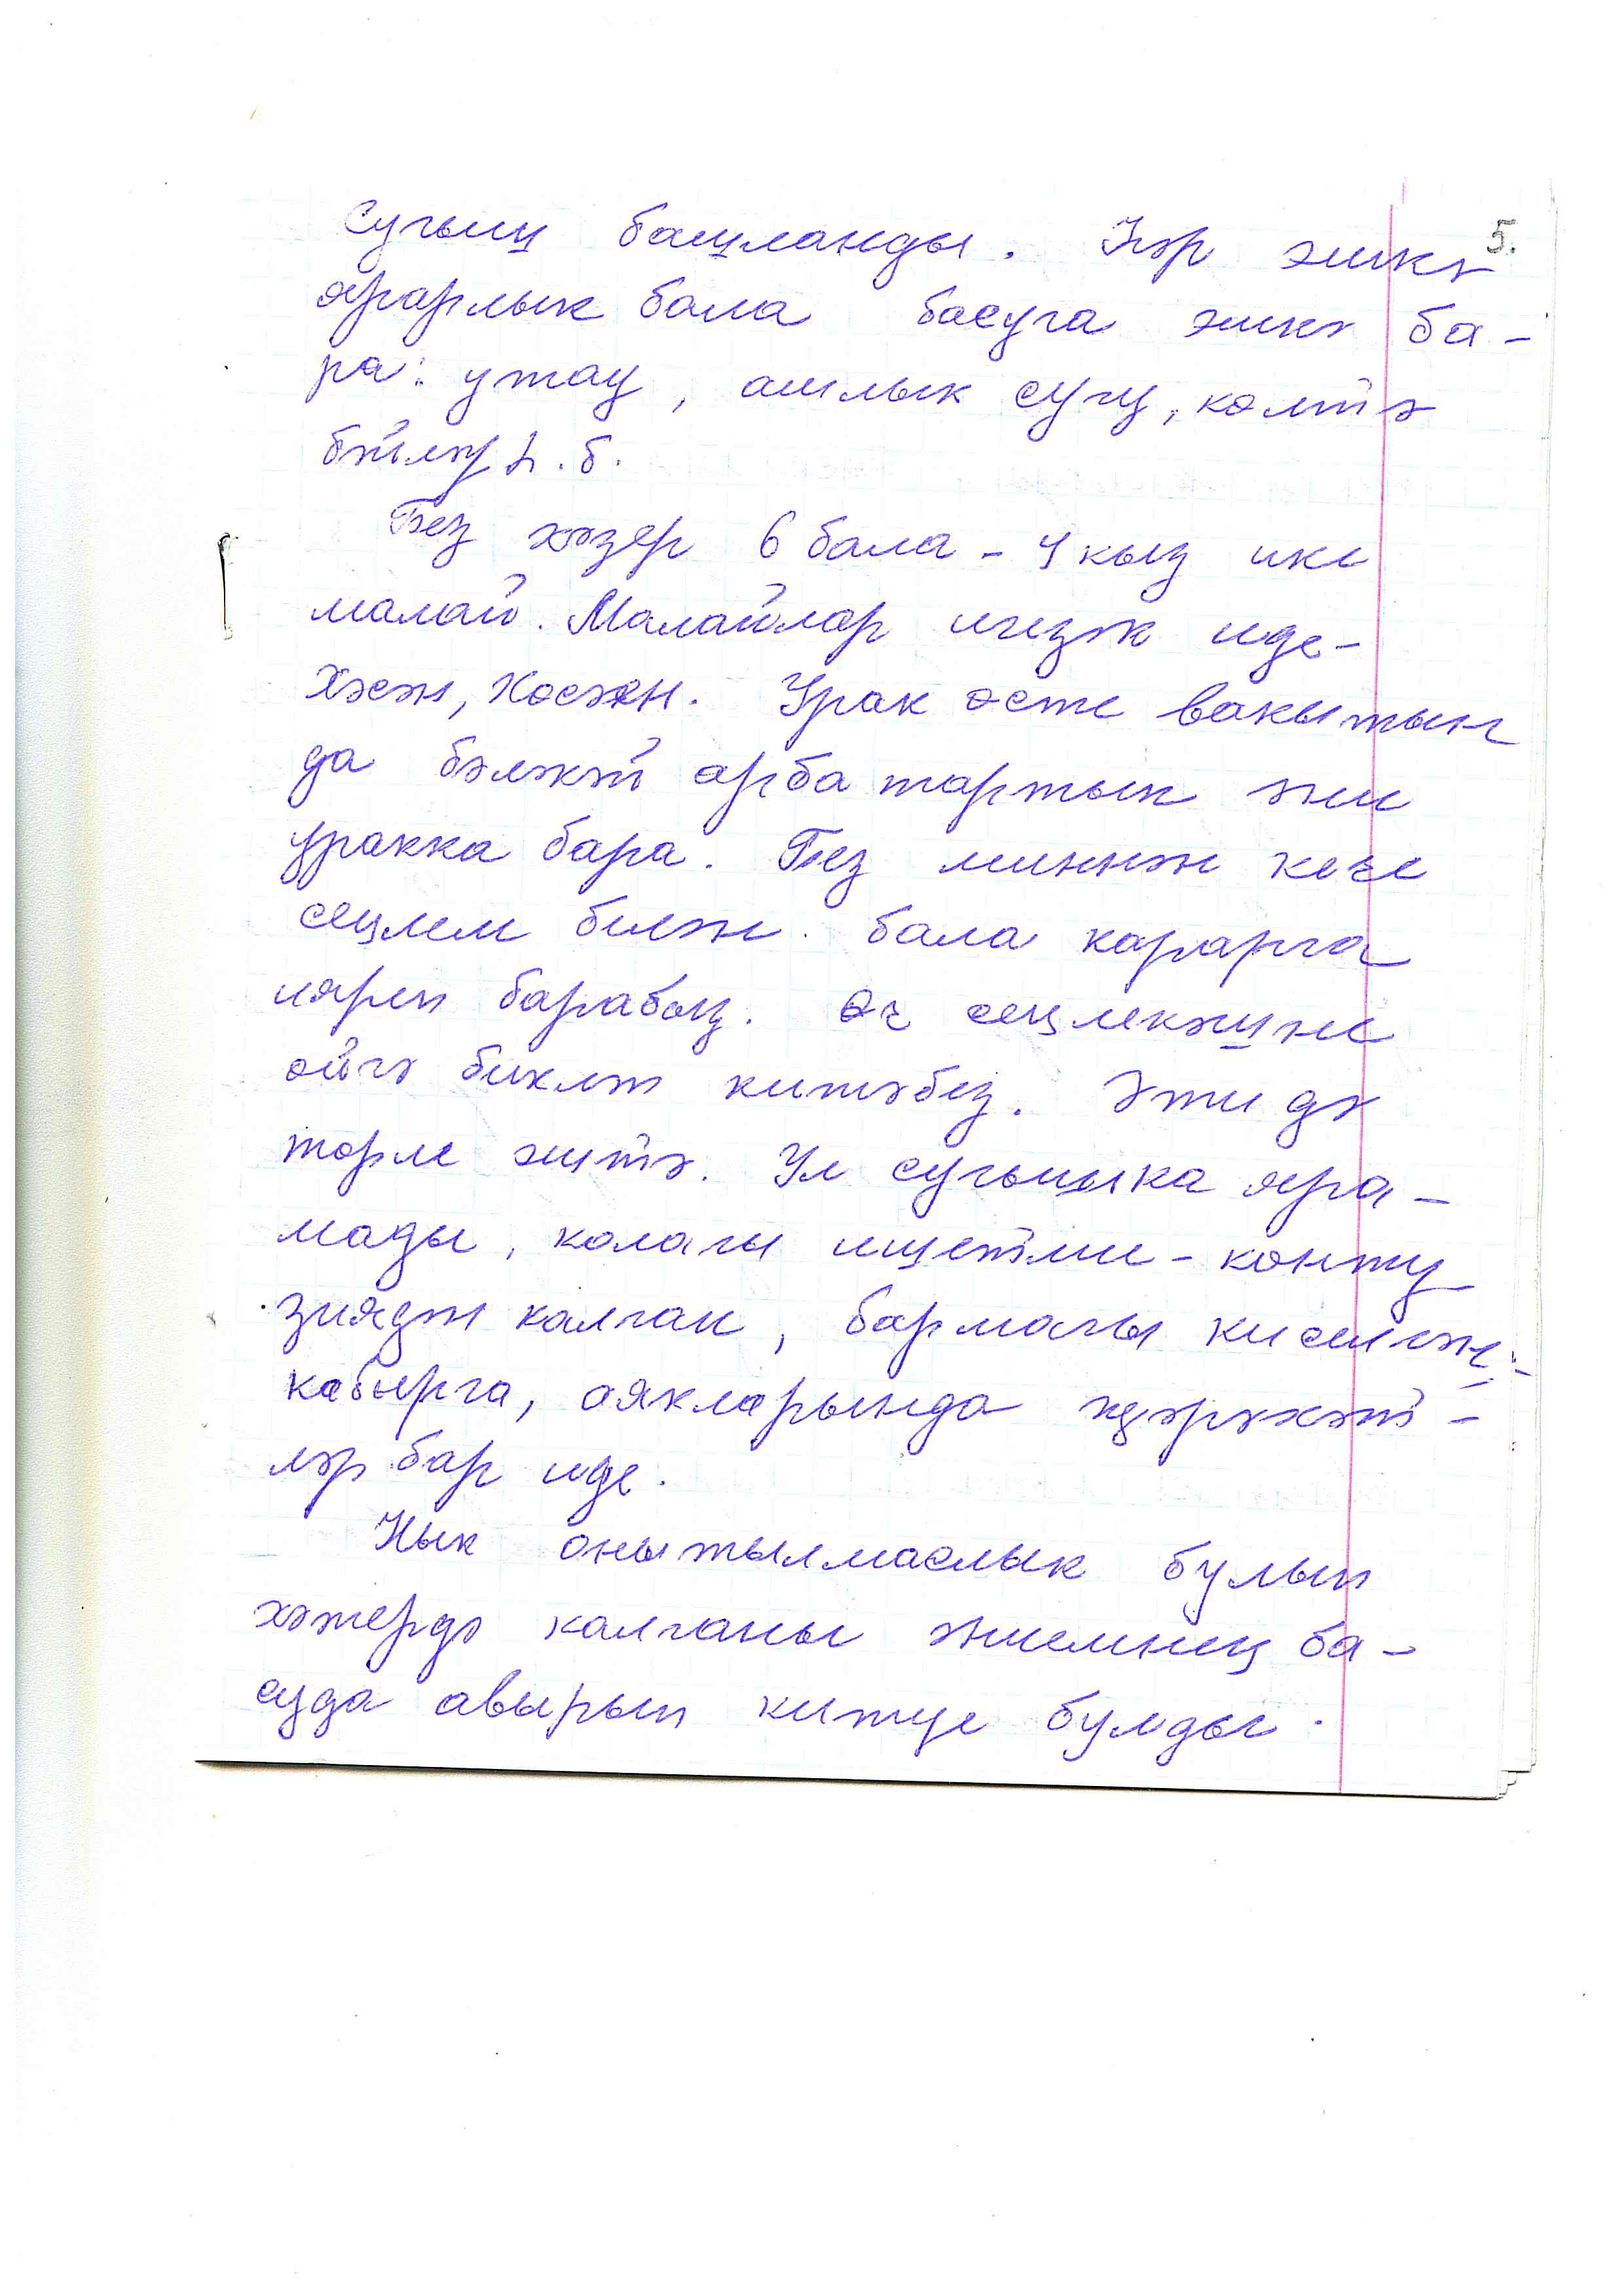 5.
Сугыш башланды. Һәр эшкә
ярарлык бала басуга эшкә ба-
ра: утау, ашлык сугу, көлтә
бәйләү һ.б.
Без хәзер 6 бала - 4 кыз ике
малай. Малайлар игезәк иде-
Хәсән, Хөсәен. Урак өсте вакытын
да бәләкәй арба тартып әни
уракка бара. Без миннән кече
сеңлем белән бала карарга
ияреп барабыз. Өч сеңлекәшне
өйгә бикләп китәбез. Әти дә
төрле эштә. Ул сугышка яра-
мады, колагы ишетми -конту
зиядән калган, бармагы киселгән,-
кабырга, аякларында җәрәхәт-
ләр бар иде.
Нык онытылмаслык булып
хәтердә калганы әниемнең ба-
суда авырып китүе булды.